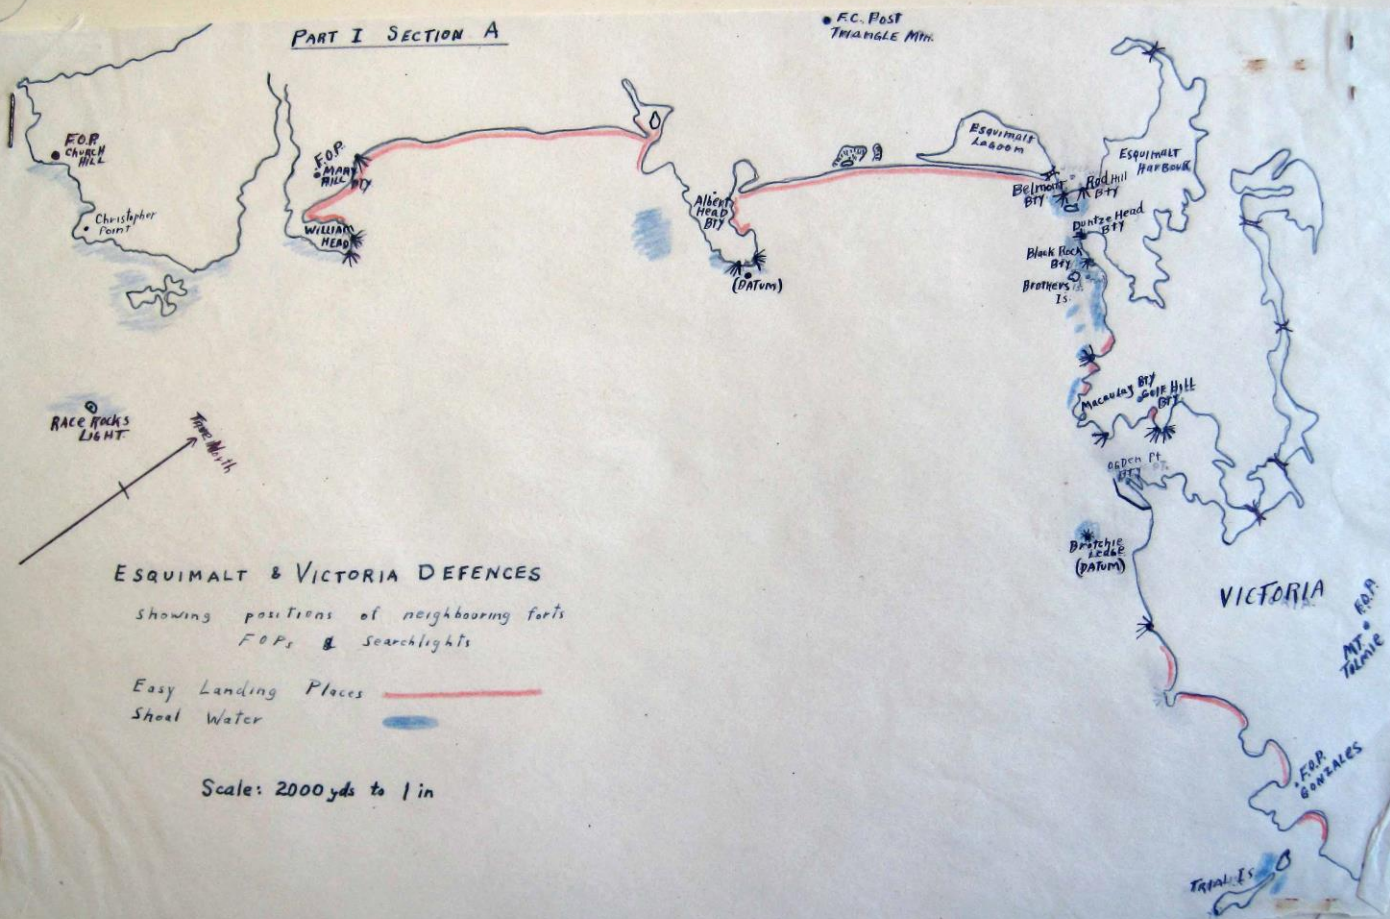 PART I SECTION A
F.C. POST
TRIANGLE Mtn.
F.O.P.
CHURCH
HILL
Christopher
Point
F.O.P.
MARY
HILL
BTY
WILLIAM
HEAD
Albert
HEAD
BTY
(DATUM)
Esquimalt
Lagoon
Esquimalt
Harbour
Belmont
BTY
Rod Hill
BTY
Duntze Head
Bty
Black Rock
Bty
Brothers
Is.
Macaulay BTY
Golf Hill
BTY
OGDEN Pt
Brotchie
Ledge
(DATUM)
RACE ROCKS
LIGHT.
True North
VICTORIA
F.O.P.
MT.
TOLMIE
F.O.P.
GONZALES
TRIAL Is.
ESQUIMALT & VICTORIA DEFENCES
Showing positions of neighbouring forts
FOPs & Searchlights
Easy Landing Places
Shoal Water
Scale: 2000 yds to 1 in